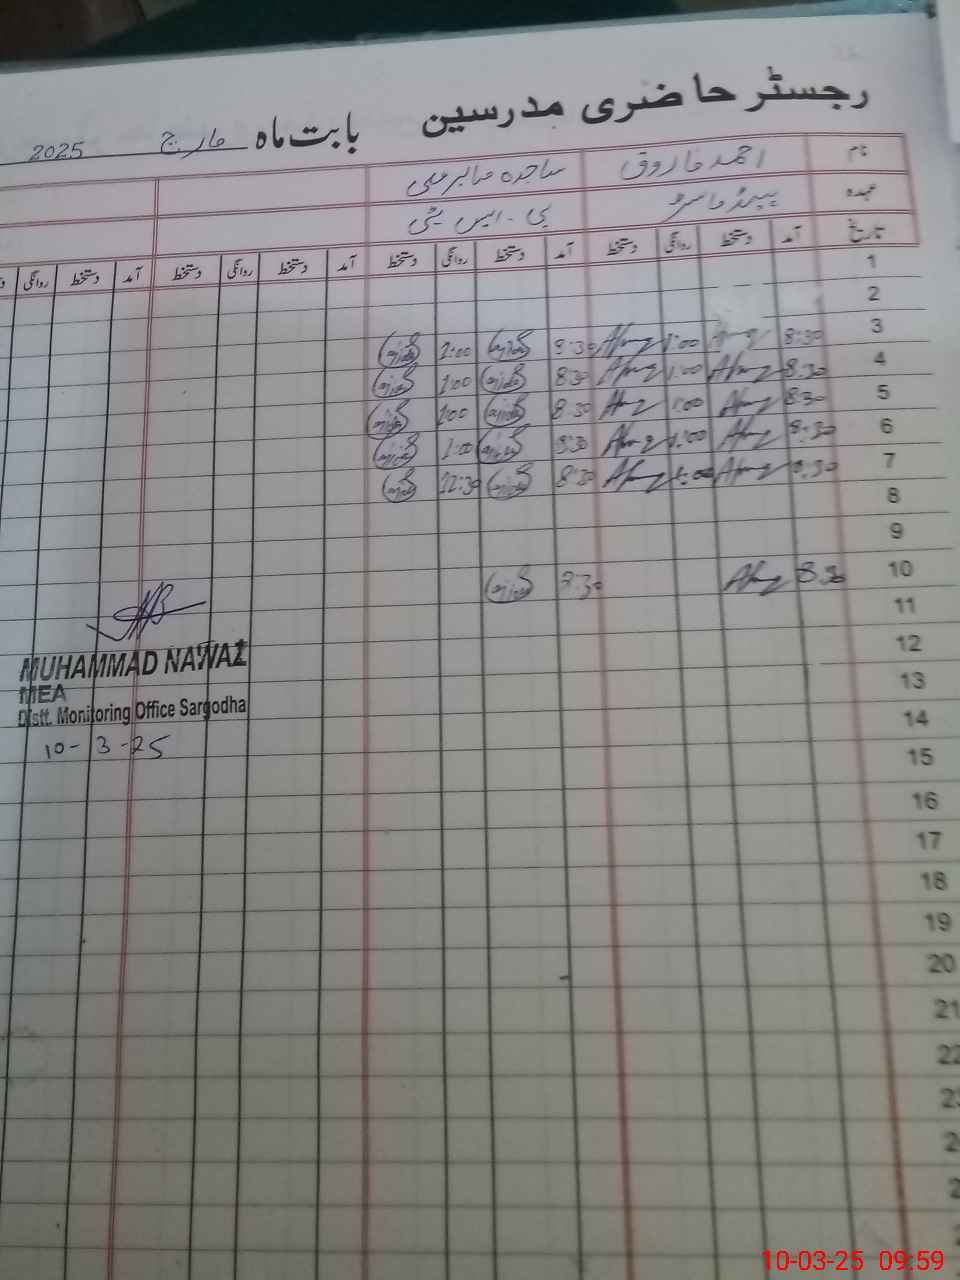 رجسٹر حاضری مدرسین بابت ماہ مارچ 2025
نام احمد فاروق ساجدہ صابر علی
عہدہ ہیڈ ماسٹر پی۔ایس۔ٹی
تاریخ آمد دستخط روانگی دستخط آمد دستخط روانگی دستخط آمد دستخط روانگی دستخط آمد دستخط روانگی
1
2
3 8:30 1:00 8:30 1:00
4 8:30 1:00 8:30 1:00
5 8:30 1:00 8:30 1:00
6 8:30 1:00 8:30 1:00
7 8:30 8:30 12:30
8
9
10 8:30 8:30
11
12
13
14
15
16
17
18
19
20
21
22
MUHAMMAD NAWAZ
MEA
Distt. Monitoring Office Sargodha
10-3-25
10-03-25 09:59